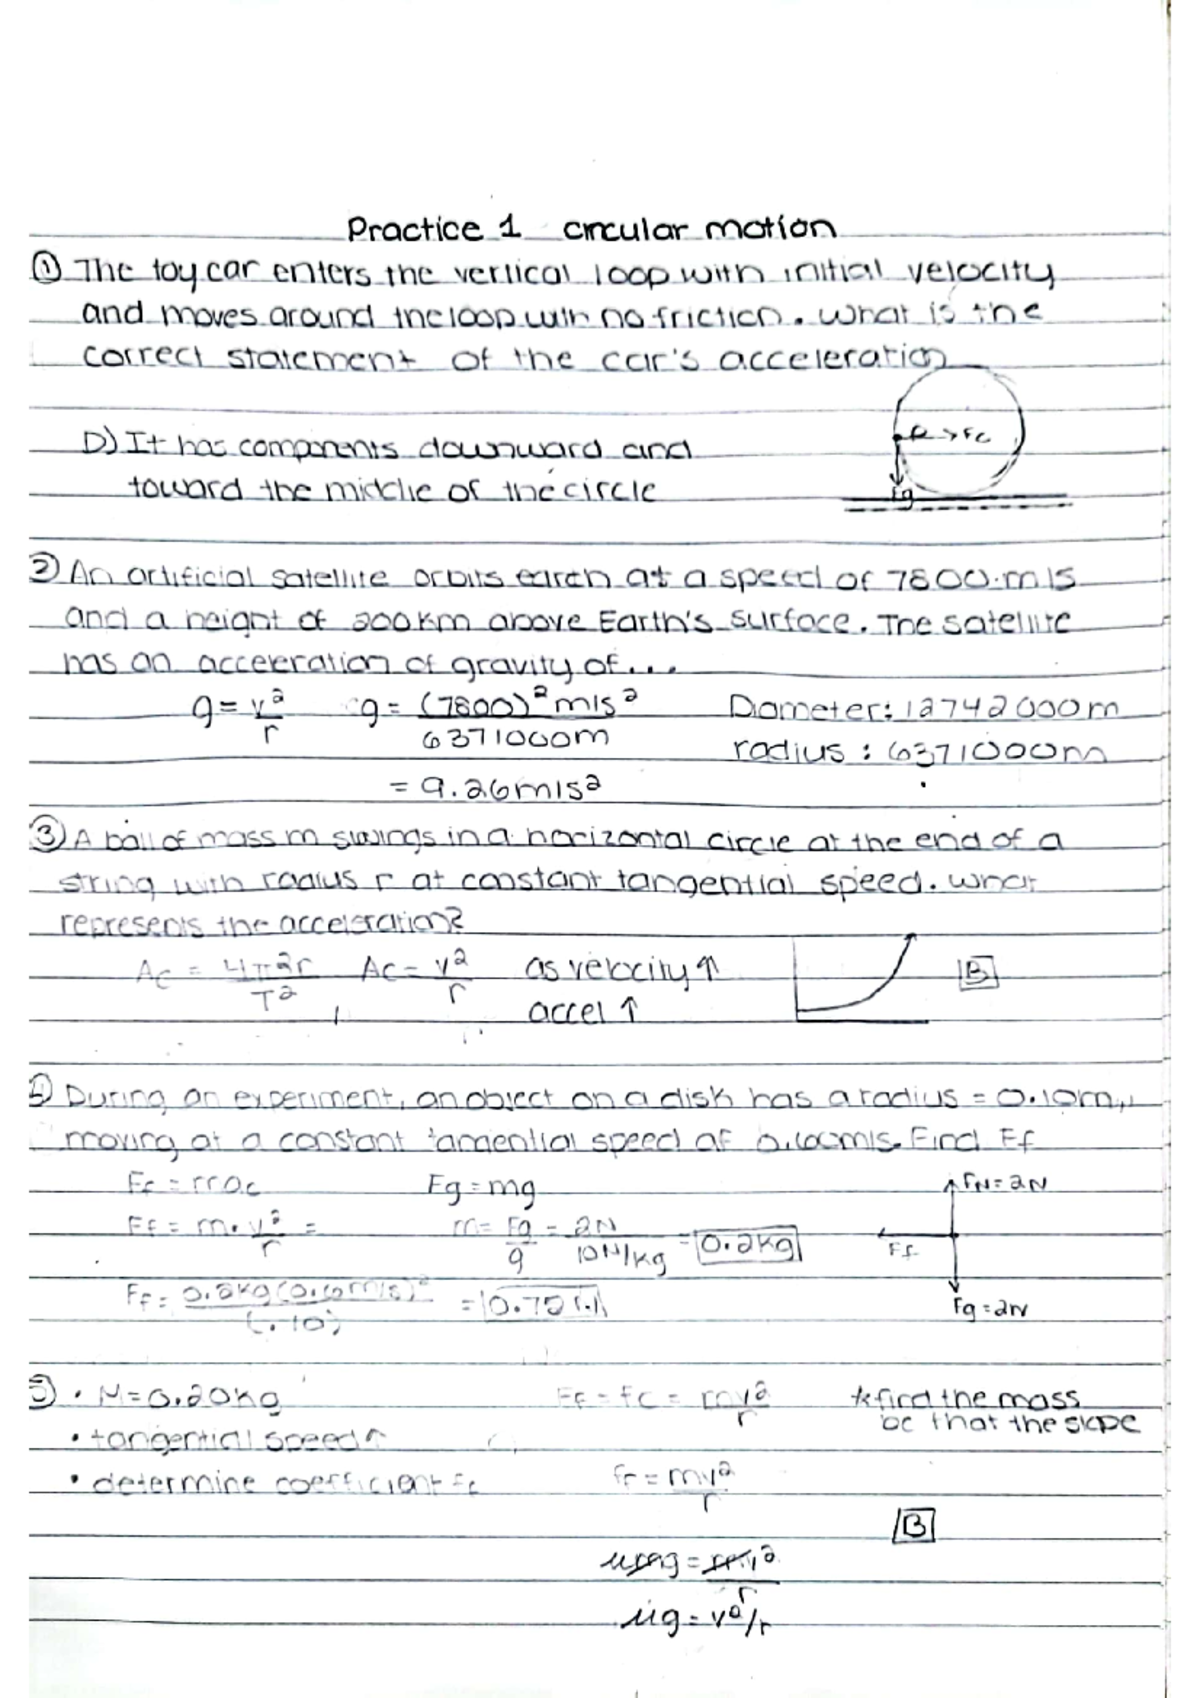 Practice 1 circular motion
① The toy car enters the vertical loop with initial velocity
and moves around the loop with no friction. What is the
correct statement of the car's acceleration
D) It has components downward and
toward the middle of the circle
R → Fc
Fg
② An artificial satellite orbits earth at a speed of 7800.m/s
and a height of 200km above Earth's surface. The satellite
has an acceleration of gravity of...
g = v²/r g = (7800)² m/s² / 6371000m Diameter: 12742000m
radius: 6371000m
= 9.26m/s²
③ A ball of mass m swings in a horizontal circle at the end of a
string with radius r at constant tangential speed. What
represents the acceleration?
Ac = 4π²r/T² Ac = v²/r as velocity ↑ B
accel ↑
④ During an experiment, an object on a disk has a radius = 0.10m,
moving at a constant tangential speed of 0.60m/s. Find Ff
Fc = mac Fg = mg FN = 2N
Ff = m · v²/r = m = Fg/g = 2N / 10N/kg = 0.2kg Ff
Ff = 0.2kg(0.60m/s)² / (.10) = 0.72N Fg = 2N
⑤ • M = 0.20kg Ff = Fc = mv²/r * find the mass
bc that the slope
• tangential speed ↑
• determine coefficient Ff Ff = mv²/r
B
μmg = mv²/r
μg = v²/r